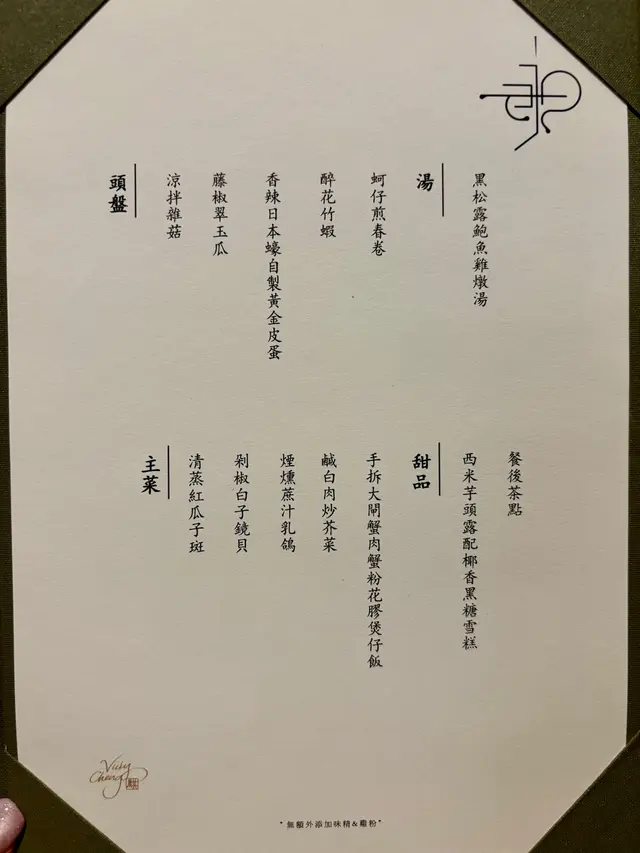 頭盤
涼拌雜菇
藤椒翠玉瓜
香辣日本蠔自製黃金皮蛋
醉花竹蝦
蚵仔煎春卷
湯
黑松露鮑魚雞燉湯
主菜
清蒸紅瓜子斑
剁椒白子鏡貝
煙燻蔗汁乳鴿
鹹白肉炒芥菜
手拆大閘蟹肉蟹粉花膠煲仔飯
甜品
西米芋頭露配椰香黑糖雪糕
餐後茶點
Vicky
Cheng
"無額外添加味精&雞粉"